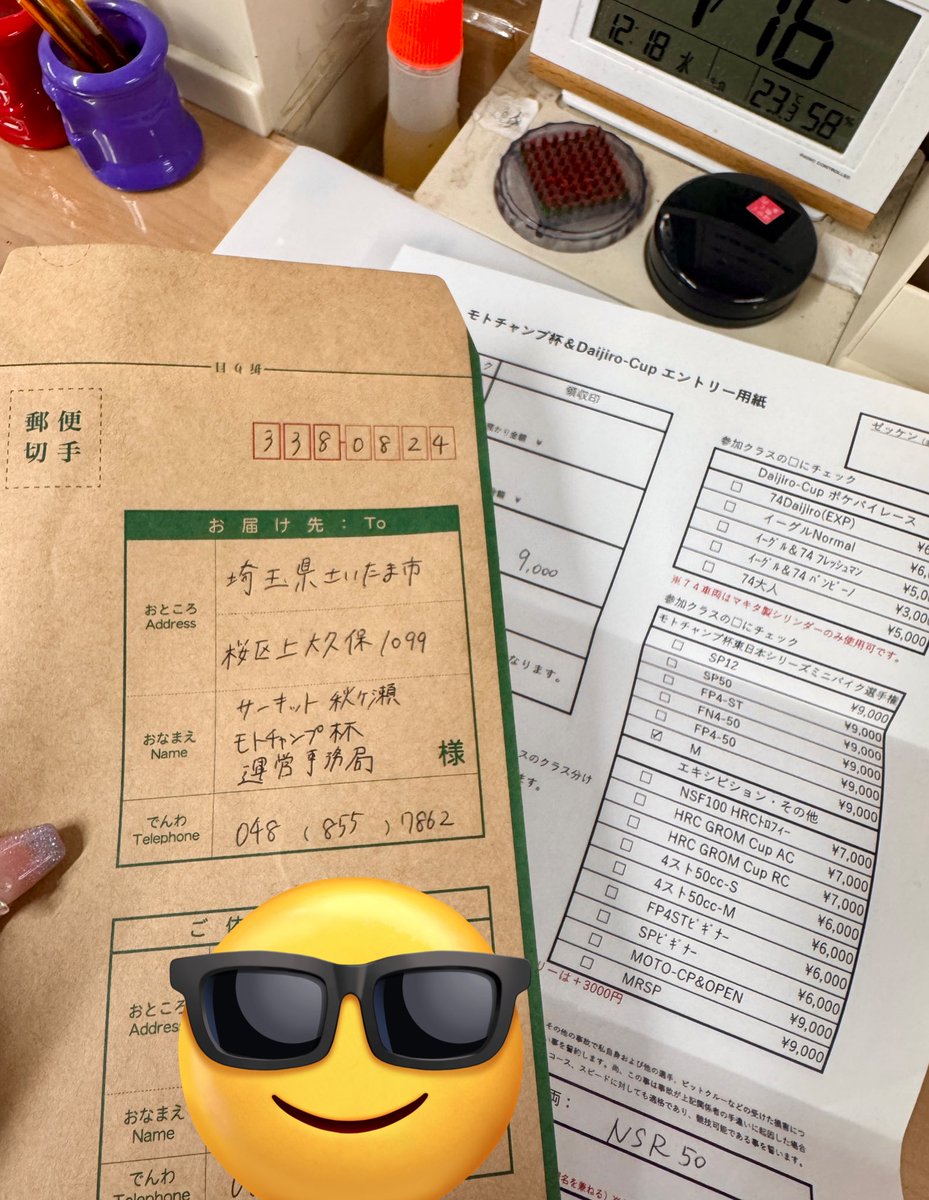 16
12.18 水
23.3℃ 58%
RADIO CONTROLLED
郵便
切手
3380824
お届け先：To
おところ
Address
埼玉県さいたま市
桜区上大久保1099
おなまえ
Name
サーキット秋ヶ瀬
モトチャンプ杯
運営事務局
様
でんわ
Telephone
048 (855) 7862
おところ
Address
おなまえ
Name
でんわ
Telephone
モトチャンプ杯&Daijiro-Cup エントリー用紙
領収印
¥
¥
9,000
なります。
スのクラス分け
ます。
ゼッケン
参加クラスの□にチェック
Daijiro-Cup ポケバイレース
□ 74Daijiro(EXP)
□ イーグルNormal
□ イーグル&74 フレッシュマン
□ イーグル&74 バンビーノ ¥3,000
□ 74大人 ¥5,000
※74車両はマキタ製シリンダーのみ使用可です。
参加クラスの□にチェック
モトチャンプ杯東日本シリーズミニバイク選手権
□ SP12 ¥9,000
□ SP50 ¥9,000
□ FP4-ST ¥9,000
□ FN4-50 ¥9,000
□ FP4-50 ¥9,000
☑ M ¥9,000
エキシビション・その他
□ NSF100 HRCトロフィー ¥7,000
□ HRC GROM Cup AC ¥7,000
□ HRC GROM Cup RC ¥7,000
□ 4スト50cc-S ¥6,000
□ 4スト50cc-M ¥6,000
□ FP4STビギナー ¥6,000
□ SPビギナー ¥6,000
□ MOTO-CP&OPEN ¥9,000
□ MRSP ¥9,000
リーは+3000円
その他の事故で私自身および他の選手、ピットクルーなどの受けた損害につ
い事を誓約します。尚、この事は事故が上記関係者の手違いに起因した場合
コース、スピードに対しても適格であり、競技可能である事を誓います。
両：
NSR50
名を兼ねる)